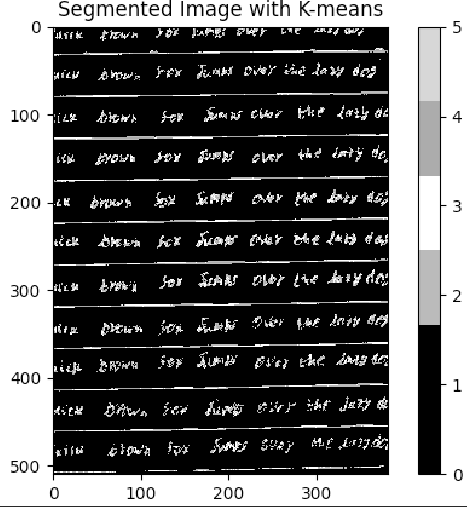 Segmented Image with K-means
brown fox jumps over the lazy
brown fox jumps over the lazy dog
ick brown fox jumps over the lazy do
brown fox jumps over the lazy do
ck brown fox jumps over the lazy dog
uick brown fox jumps over the lazy dog
uick brown fox jumps over the lazy dog
brown fox jumps over the lazy dog
uick brown fox jumps over the lazy dog
uick brown fox jumps over the lazy do
brown fox jumps over the lazy dog
0
100
200
300
400
500
0 100 200 300
5
4
3
2
1
0